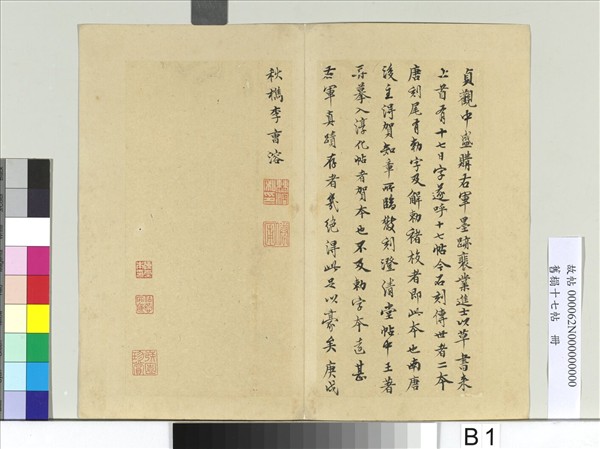 貞觀中盛購右軍墨跡裴業進士以草書来
上首有十七日字遂呼十七帖今石刻傳世者二本
唐刻尾有勅字及解勅褚放者即此本也南唐
後主得賀知章所臨數刻澄清堂帖中王著
又摹入淳化帖者賀本也不及勅字本遠甚
右軍真蹟存者幾絶得此足以豪矣庚戌
秋檇李曹溶
故帖 000062N000000000
舊搨十七帖 冊
B1